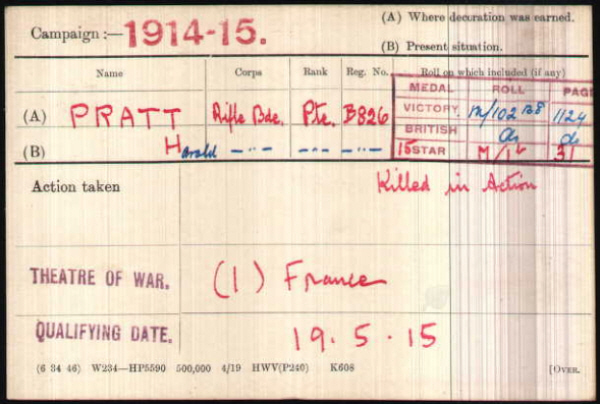 (A) Where decoration was earned.
Campaign :— 1914-15.
(B) Present situation.
Name Corps Rank Reg. No. Roll on which included (if any)
MEDAL ROLL PAGE
(A) PRATT Rifle Bde. Pte. B826 VICTORY M/102 B8 1124
BRITISH do do
(B) Harold — " — — " — — " — 15 STAR M/16 31
Action taken Killed in Action
THEATRE OF WAR. (1) France
QUALIFYING DATE. 19.5.15
(6 34 46) W234—HP5590 500,000 4/19 HWV(P240) K608 [OVER.